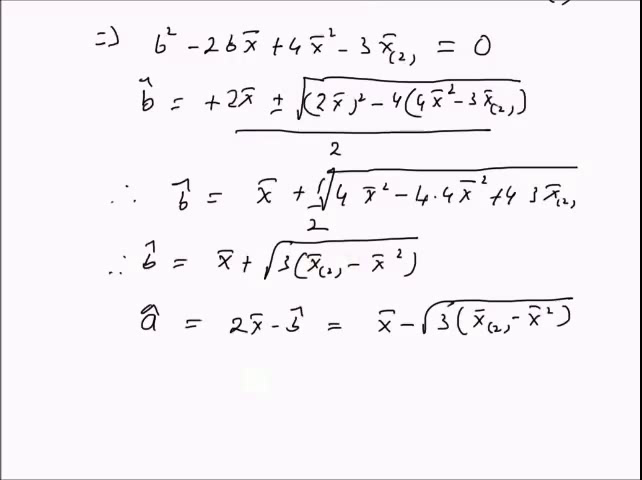 ⇒ b² − 2bx̄ + 4x̄² − 3x̄₍₂₎ = 0
b̂ = +2x̄ ± √((2x̄)² − 4(4x̄² − 3x̄₍₂₎)) / 2
∴ b̂ = x̄ + ½√(4x̄² − 4·4x̄² + 4 3x̄₍₂₎)
∴ b̂ = x̄ + √(3(x̄₍₂₎ − x̄²))
â = 2x̄ − b̂ = x̄ − √(3(x̄₍₂₎ − x̄²))